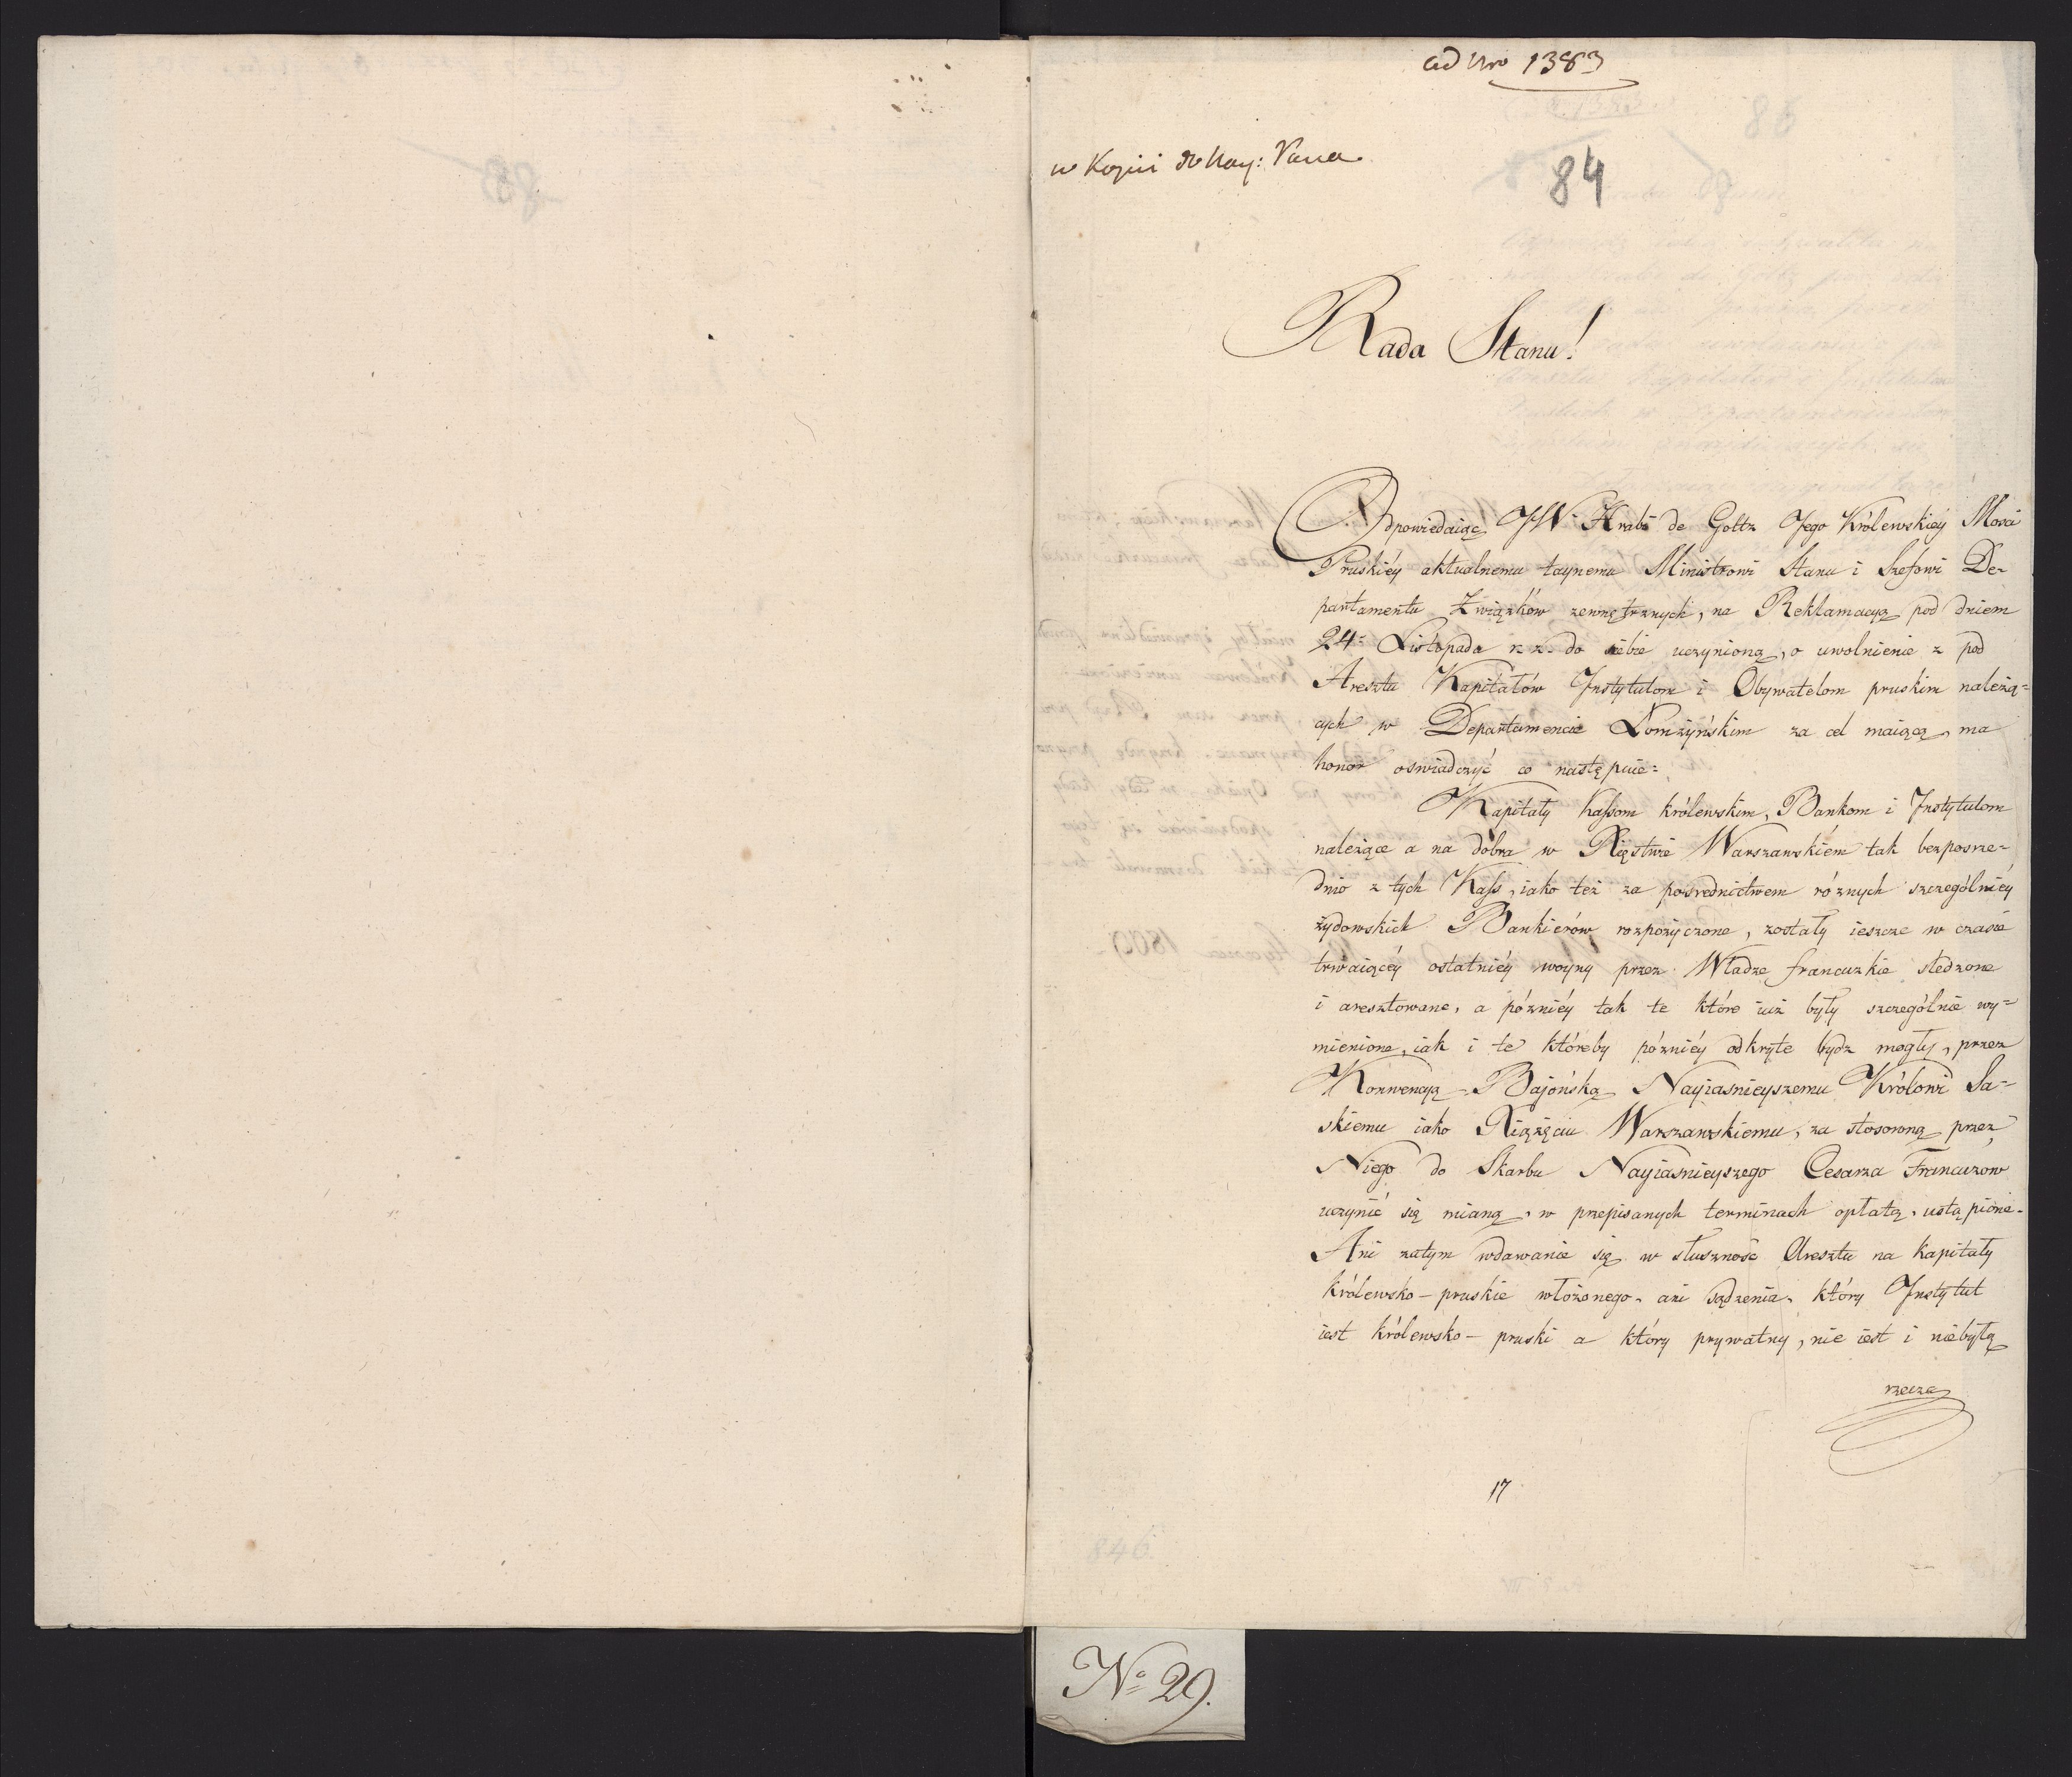 ad Nro 1383
w Kopii do Nay: Pana
84
Rada Stanu!
Odpowiedaiąc JW. Hrabi de Goltz Jego Królewskiéy Mosci
Pruskiéy aktualnemu taynemu Ministrowi Stanu i Szefowi De-
partamentu Związków zewnętrznych, na Reklamacyą pod dniem
24: Listopada r. z. do siebie uczynioną, o uwolnienie z pod
Aresztu Kapitałów Instytutom i Obywatelom pruskim należą=
cych w Departamencie Łomżyńskim za cel maiącą, ma
honor oswiadczyć co następuie=
Kapitały kassom królewskim, Bankom i Instytutom
należące a na dobra w Xięstwie Warszawskiém tak bezposrze=
dnio z tych Kass, iako też za posrednictwem róznych szczególniéy
żydowskich Bankierów rozpożyczone, zostały ieszcze w czasie
trwaiącéy ostatniéy woyny przez Władze francuzkie sledzone
i aresztowane, a pózniéy tak te które iuż były szczególnie wy=
mienione, iak i te któreby pózniéy odkryte bydz mogły, przez
Konwencyą Bajońską Nayiasnieyszemu Królowi Sa=
skiemu iako Xiążęciu Warszawskiemu, za stosowną przez
Niego do Skarbu Nayiasnieyszego Cesarza Francuzow
uczynić się mianą, w przepisanych terminach opłatą, ustąpione.
Ani zatym wdawanie się w słuszność Aresztu na kapitały
królewsko-pruskie włożonego, ani sądzenia, który Instytut
iest królewsko-pruski a który prywatny, nie iest i niebyłą
rzeczą
17
846.
Nº 29.